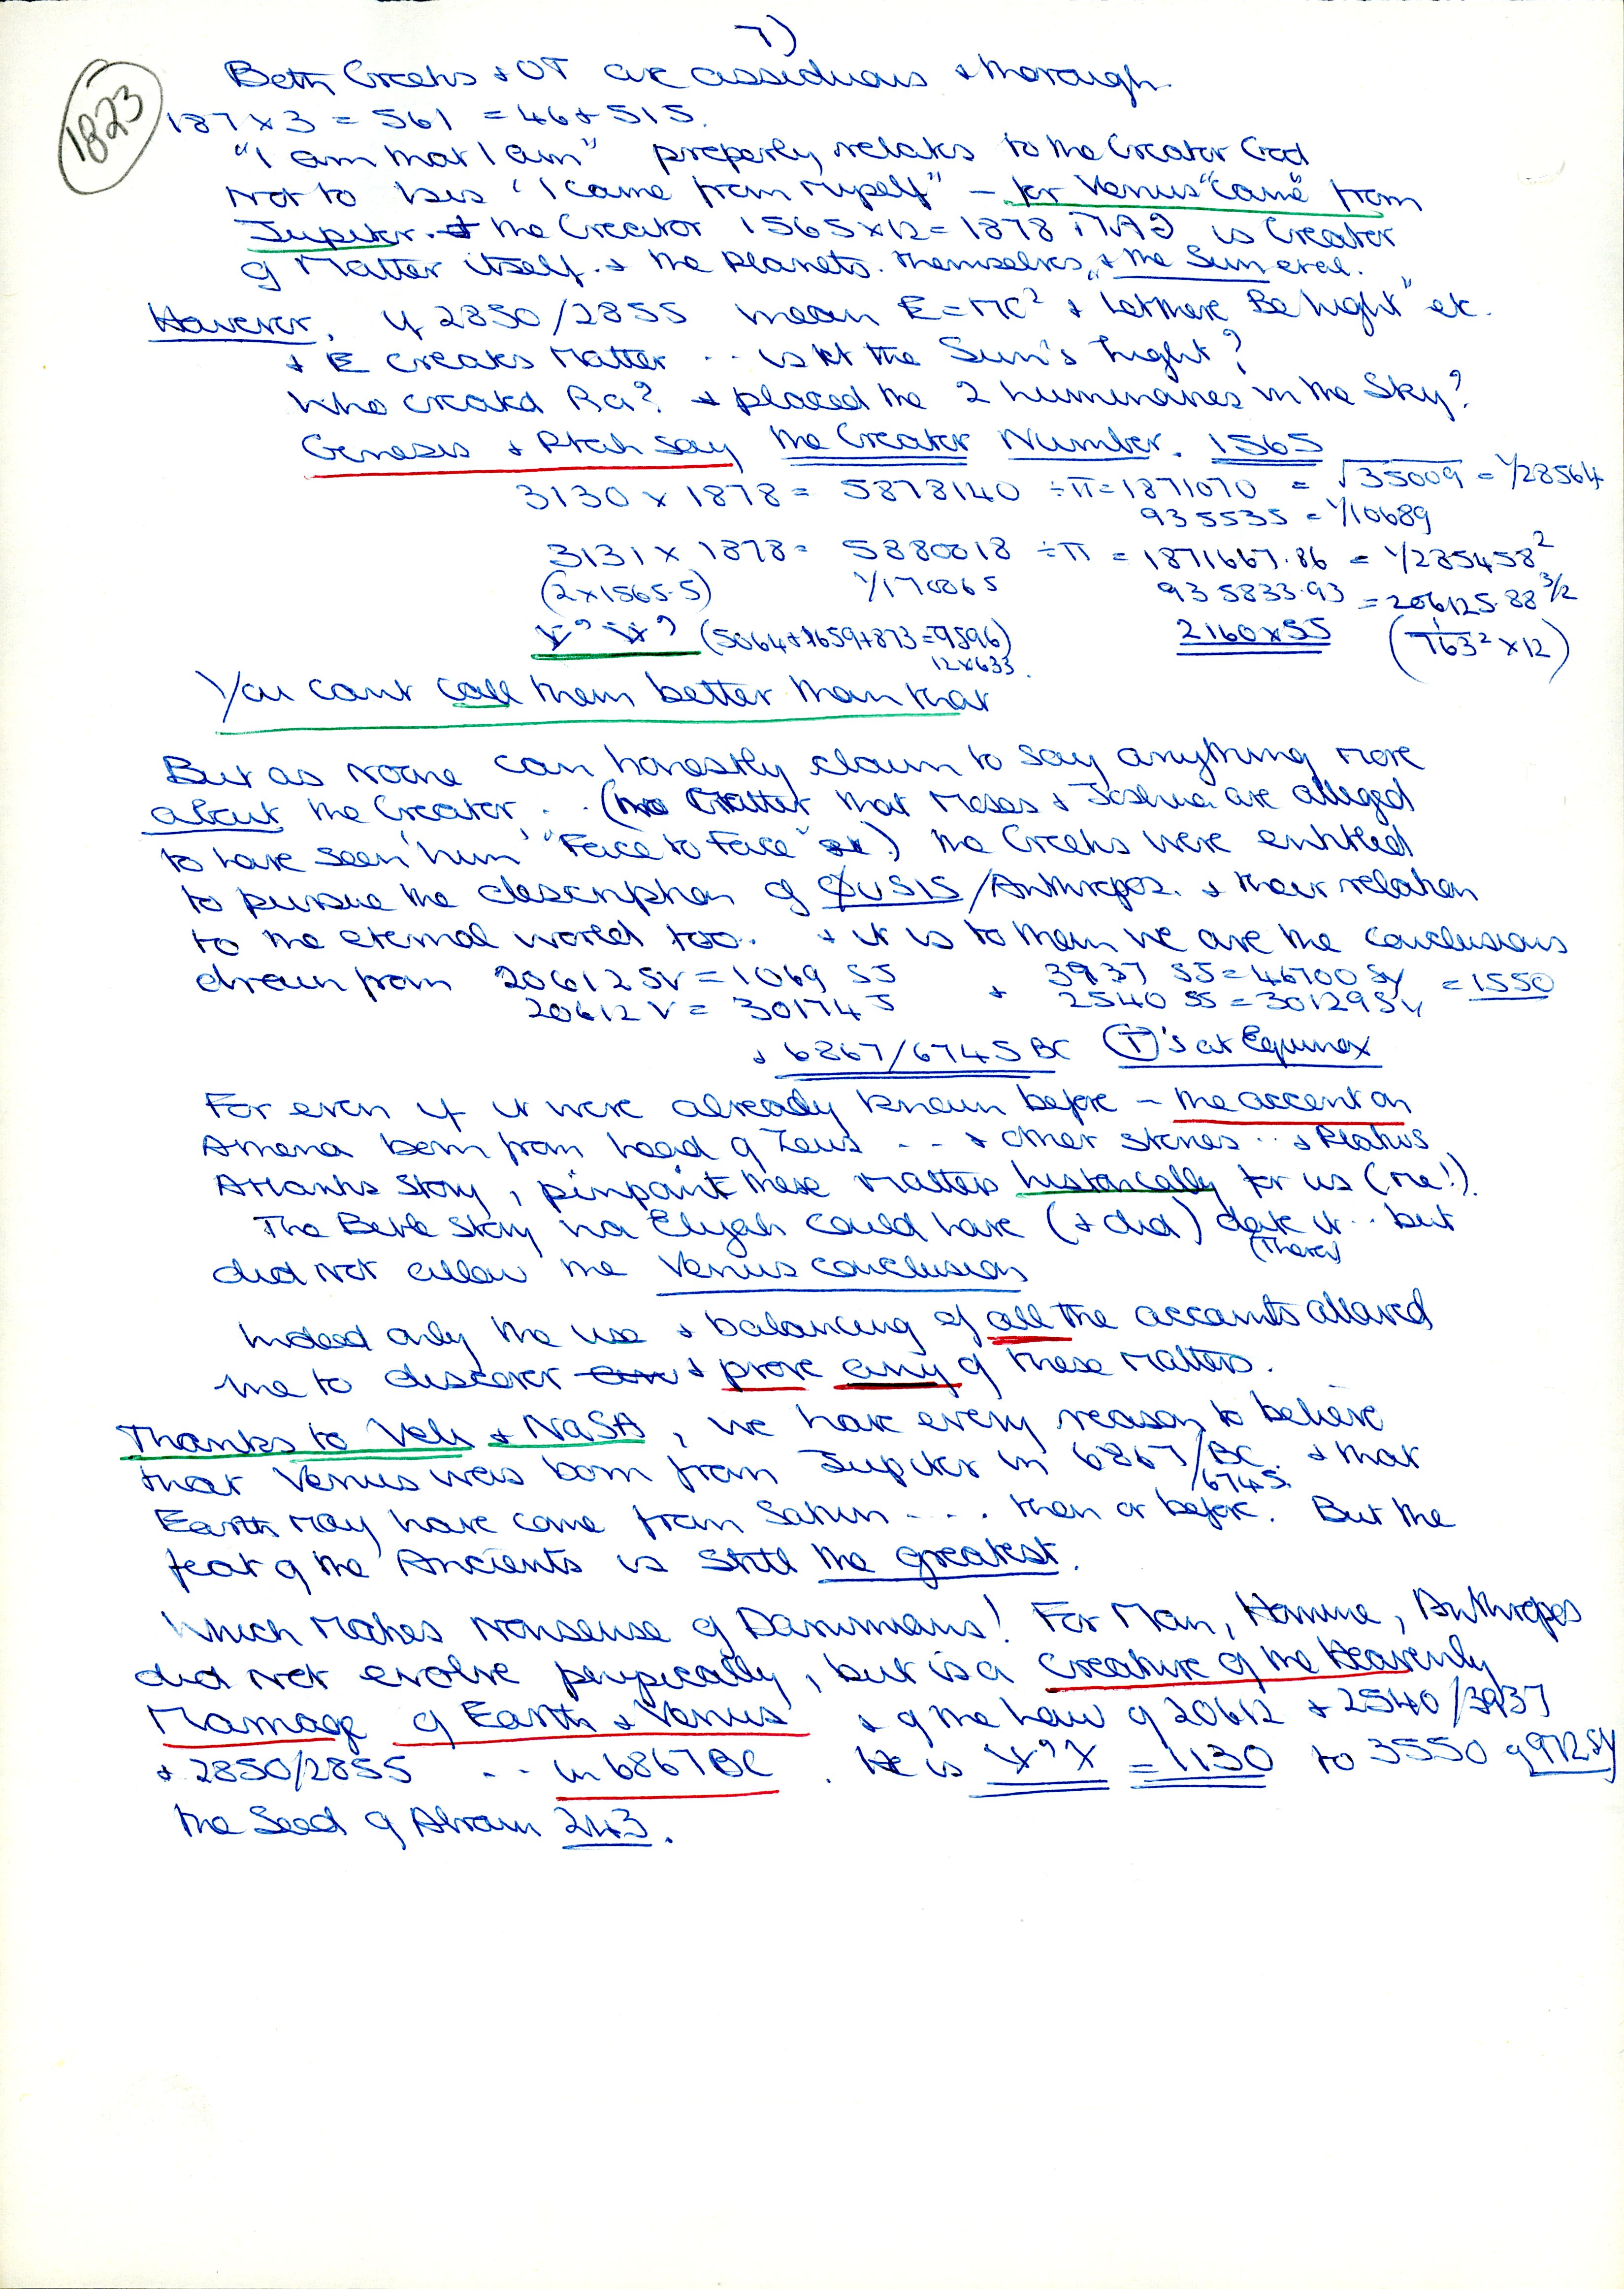 7)
1823
Both Greeks + OT are assiduous & thorough.
187 x 3 = 561 = 46 + 515.
"I am that I am" properly relates to the Creator God
Not to Isis "I came from Myself" – for Venus "came" from
Jupiter. & the Creator 1565 x 12 = 1878 is Creator
of Matter itself. & the Planets. themselves, & the Sun etal.
However, if 2850/2855 mean E = MC² & "Let there Be Light" etc.
& E creates Matter .. is it the Sun's Light?
Who created Ra? & placed the 2 Luminaries in the Sky?
Genesis & Ptah say the Creator Number. 1565
3130 x 1878 = 5878140 ÷ π = 1871070 = √35009 = 1/28564
935535 = 1/10689
3131 x 1878 = 5880018 ÷ π = 1871667.86 = 1/285458²
(2 x 1565.5) 1/170065 935833.93 = 206125.88 3/2
(5064+1659+873=9596) 2160 x 55 (1/763² x 12)
12 x 633.
You cant call them better than that
But as Noone can honestly claim to say anything more
about the Creator .. (no Matter that Moses & Joshua are alleged
to have seen 'him' "Face to Face") the Greeks were entitled
to pursue the description of ΦUSIS/Anthropos. & their relation
to the eternal world too. & it is to them we owe the conclusions
drawn from 20612 SV = 1069 SJ & 3937 SJ = 46700 Sy = 1550
20612 V = 30174 J 2540 SS = 30129 Sy
& 6867/6745 BC (T)'s at Equinox
For even if it were already known before – the accent on
Athena born from head of Zeus .. & other stories .. & Platos
Atlantis Story, pinpoint these Matters historically for us (me!).
The Bible Story via Elijah could have (& did) date it .. but
(Thera)
did not allow the Venus conclusion
Indeed only the use & balancing of all the accounts allowed
me to discover & prove any of these matters.
Thanks to Veli & NASA, we have every reason to believe
that Venus was born from Jupiter in 6867/BC. & that
/6745.
Earth May have come from Saturn .... then or before. But the
feat of the Ancients is still the greatest.
Which Makes Nonsense of Darwinians! For Man, Homine, Anthropos
did not evolve physically, but is a Creature of the Heavenly
Marriage of Earth & Venus & of the Law of 20612 & 2540/3937
& 2850/2855 .. in 6867 BC. He is = 1130 to 3550 of 9712 Sy
the Seed of Abram 243.